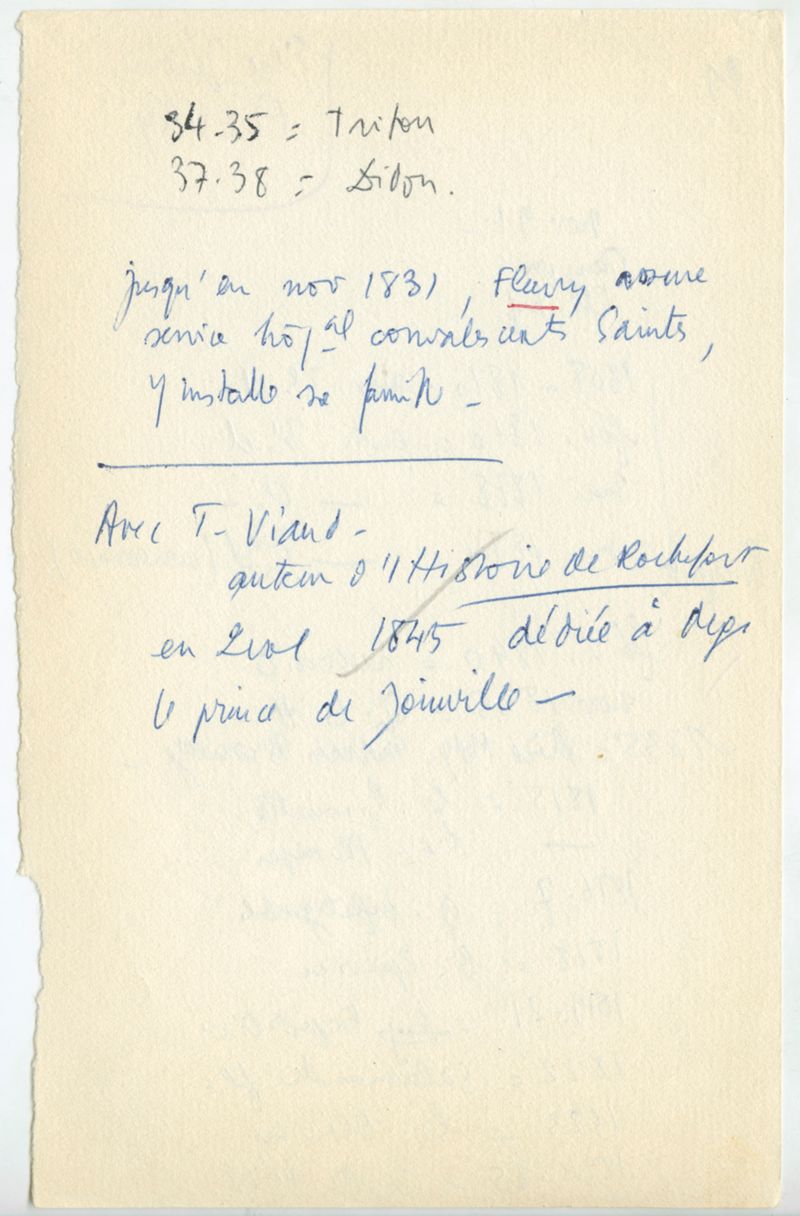 34.35 = Triton
37.38 = Didon.
jusqu'en nov 1831, Fleury assure
service hôpal convalescents Saintes,
y installe sa famille -
Avec T. Viaud -
auteur d'1 Histoire de Rochefort
en 2 vol 1845 dédiée à
le prince de Joinville -